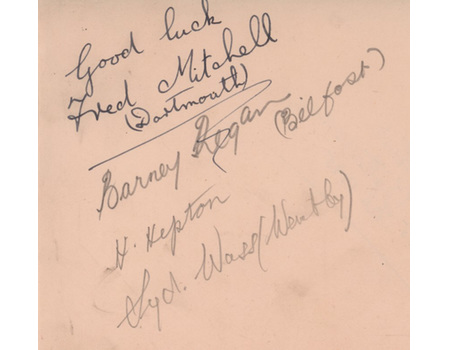 Good luck
Fred Mitchell
(Dartmouth)
Barney Regan
(Belfast)
H. Hepton
Syd. Wass (Wembley)